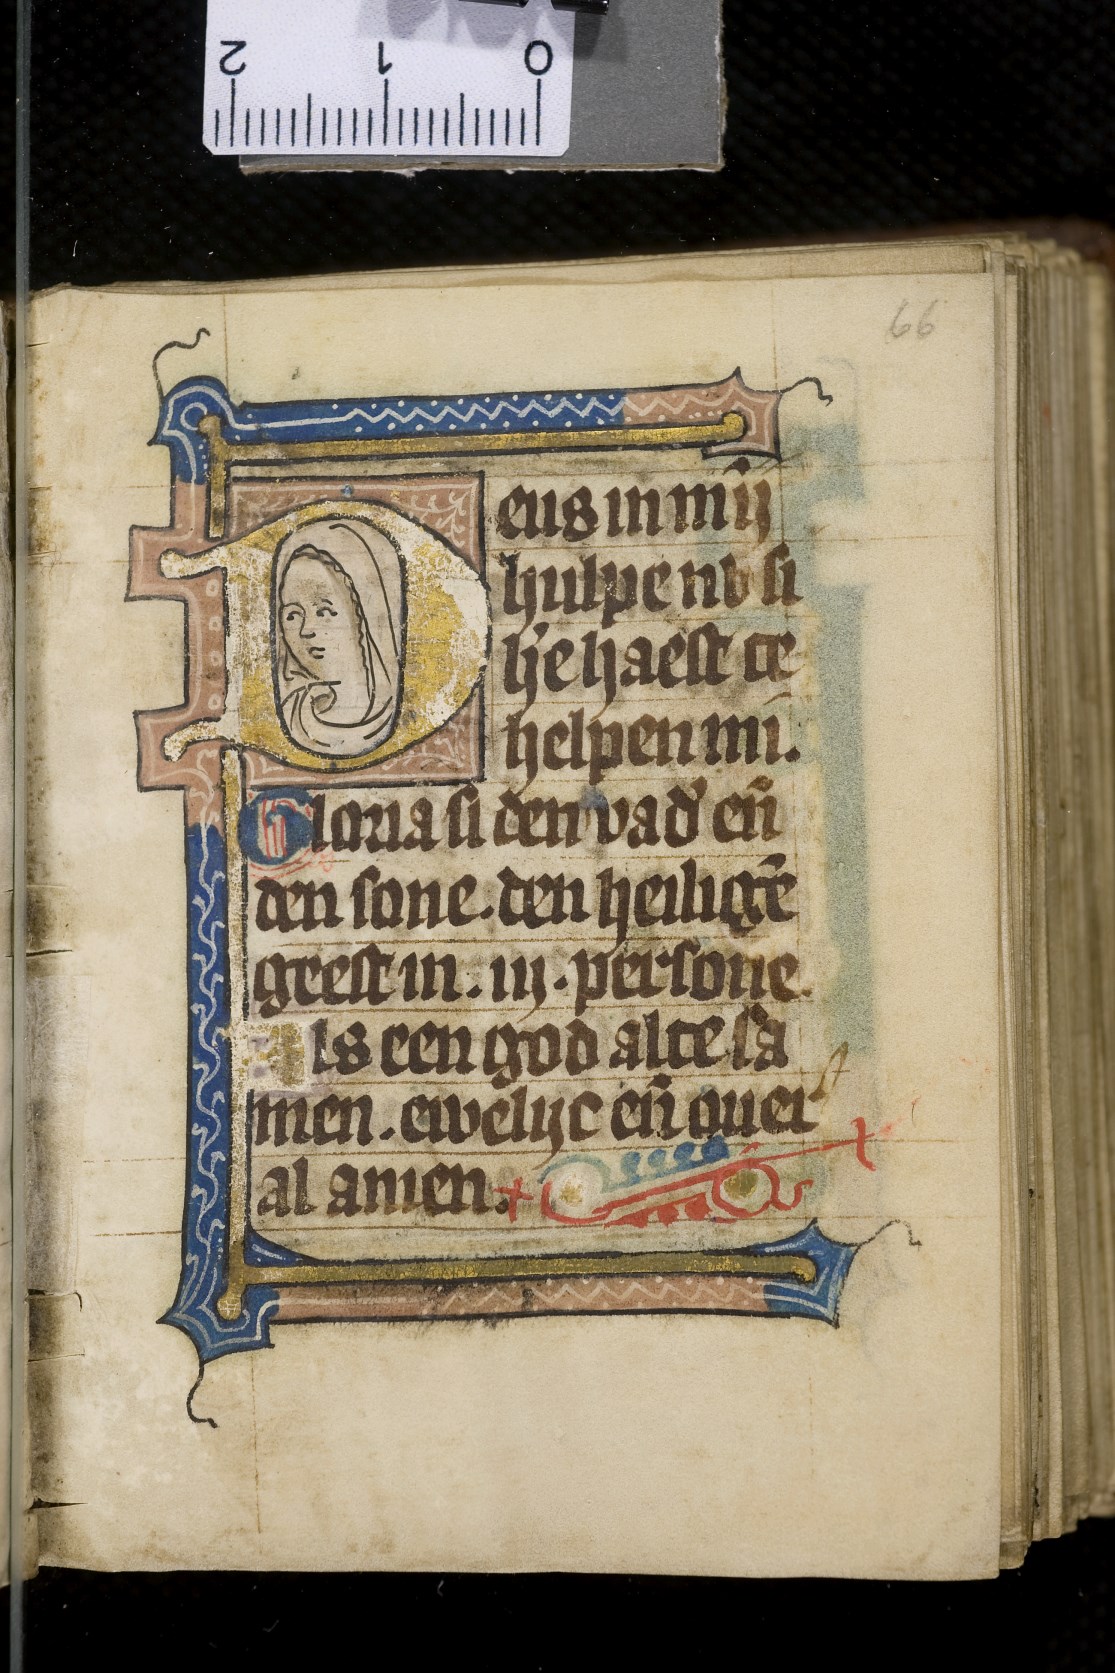 2 1 0
66
Deus in mīj
hulpe nv si
h'e haest te
helpen mi.
Gloria si den vad' eñ
den sone. den heiligē
geest in. iij. persone.
Als een god alte sā
men. ewelijc eñ ouer
al amen.